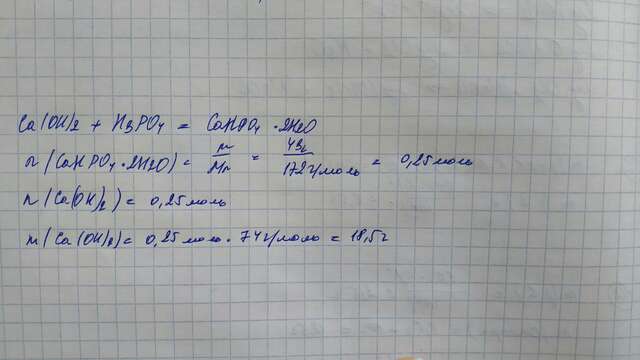 Ca(OH)2 + H3PO4 = CaHPO4 · 2H2O
n(CaHPO4 · 2H2O) = m/Mr = 43г/172г/моль = 0,25 моль
n(Ca(OH)2) = 0,25 моль
m(Ca(OH)2) = 0,25 моль · 74г/моль = 18,5г